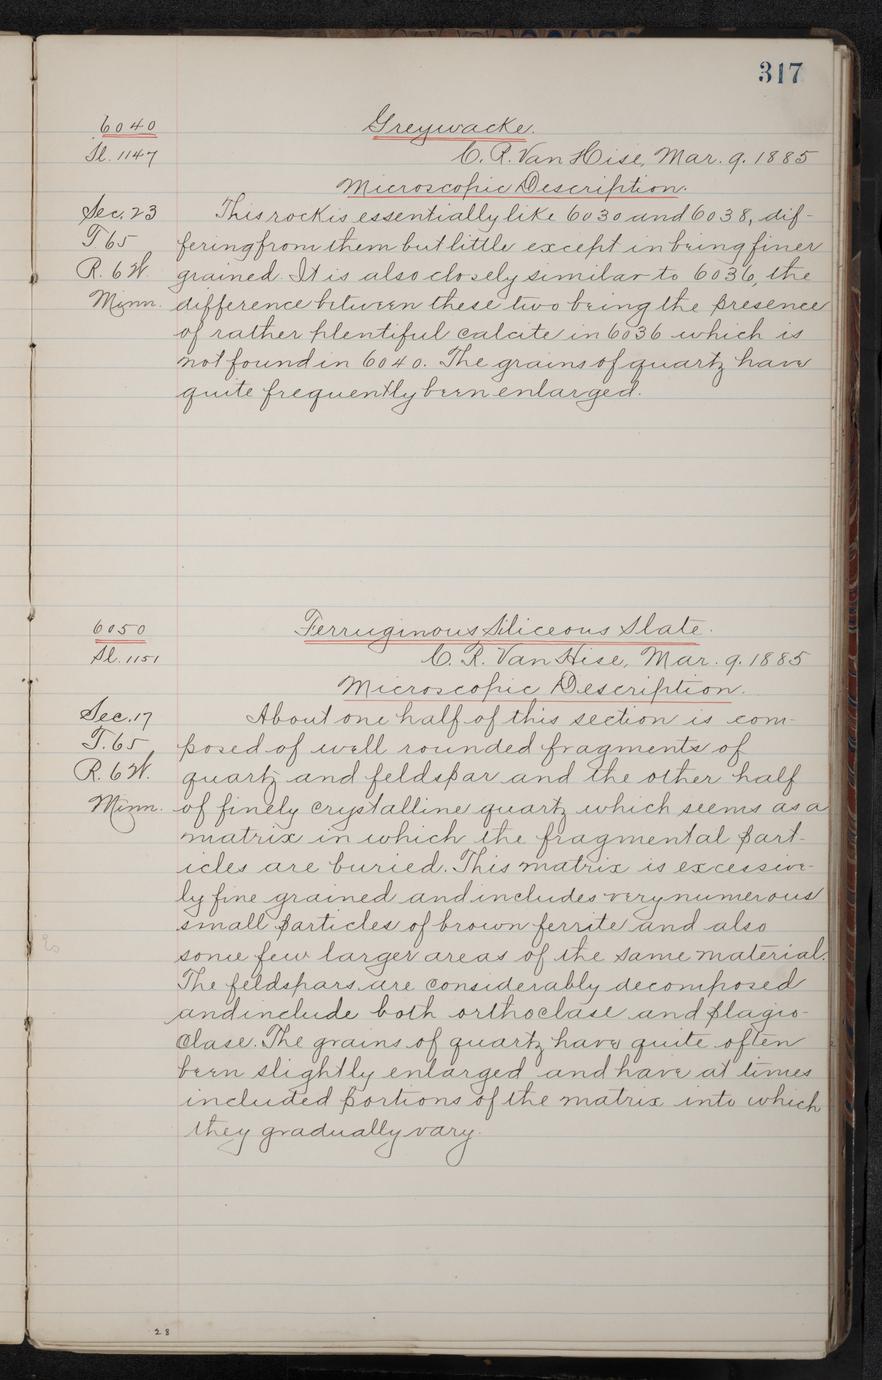 317
6040
Greywacke.
Sl. 1147
C. R. Van Hise, Mar. 9. 1885
Microscopic Description.
Sec. 23
T 65
R. 6 W.
Minn.
This rock is essentially like 6030 and 6038, dif-
fering from them but little except in being finer
grained. It is also closely similar to 6036, the
difference between these two being the presence
of rather plentiful calcite in 6036 which is
not found in 6040. The grains of quartz have
quite frequently been enlarged.
6050
Ferruginous Siliceous Slate.
Sl. 1151
C. R. Van Hise, Mar. 9. 1885
Microscopic Description.
Sec. 17
T. 65
R. 6 W.
Minn.
About one half of this section is com-
posed of well rounded fragments of
quartz and feldspar and the other half
of finely crystalline quartz which seems as a
matrix in which the fragmental part-
icles are buried. This matrix is excessive-
ly fine grained and includes very numerous
small particles of brown ferrite and also
some few larger areas of the same material.
The feldspars are considerably decomposed
and include both orthoclase and plagio-
clase. The grains of quartz have quite often
been slightly enlarged and have at times
included portions of the matrix into which
they gradually vary.
28